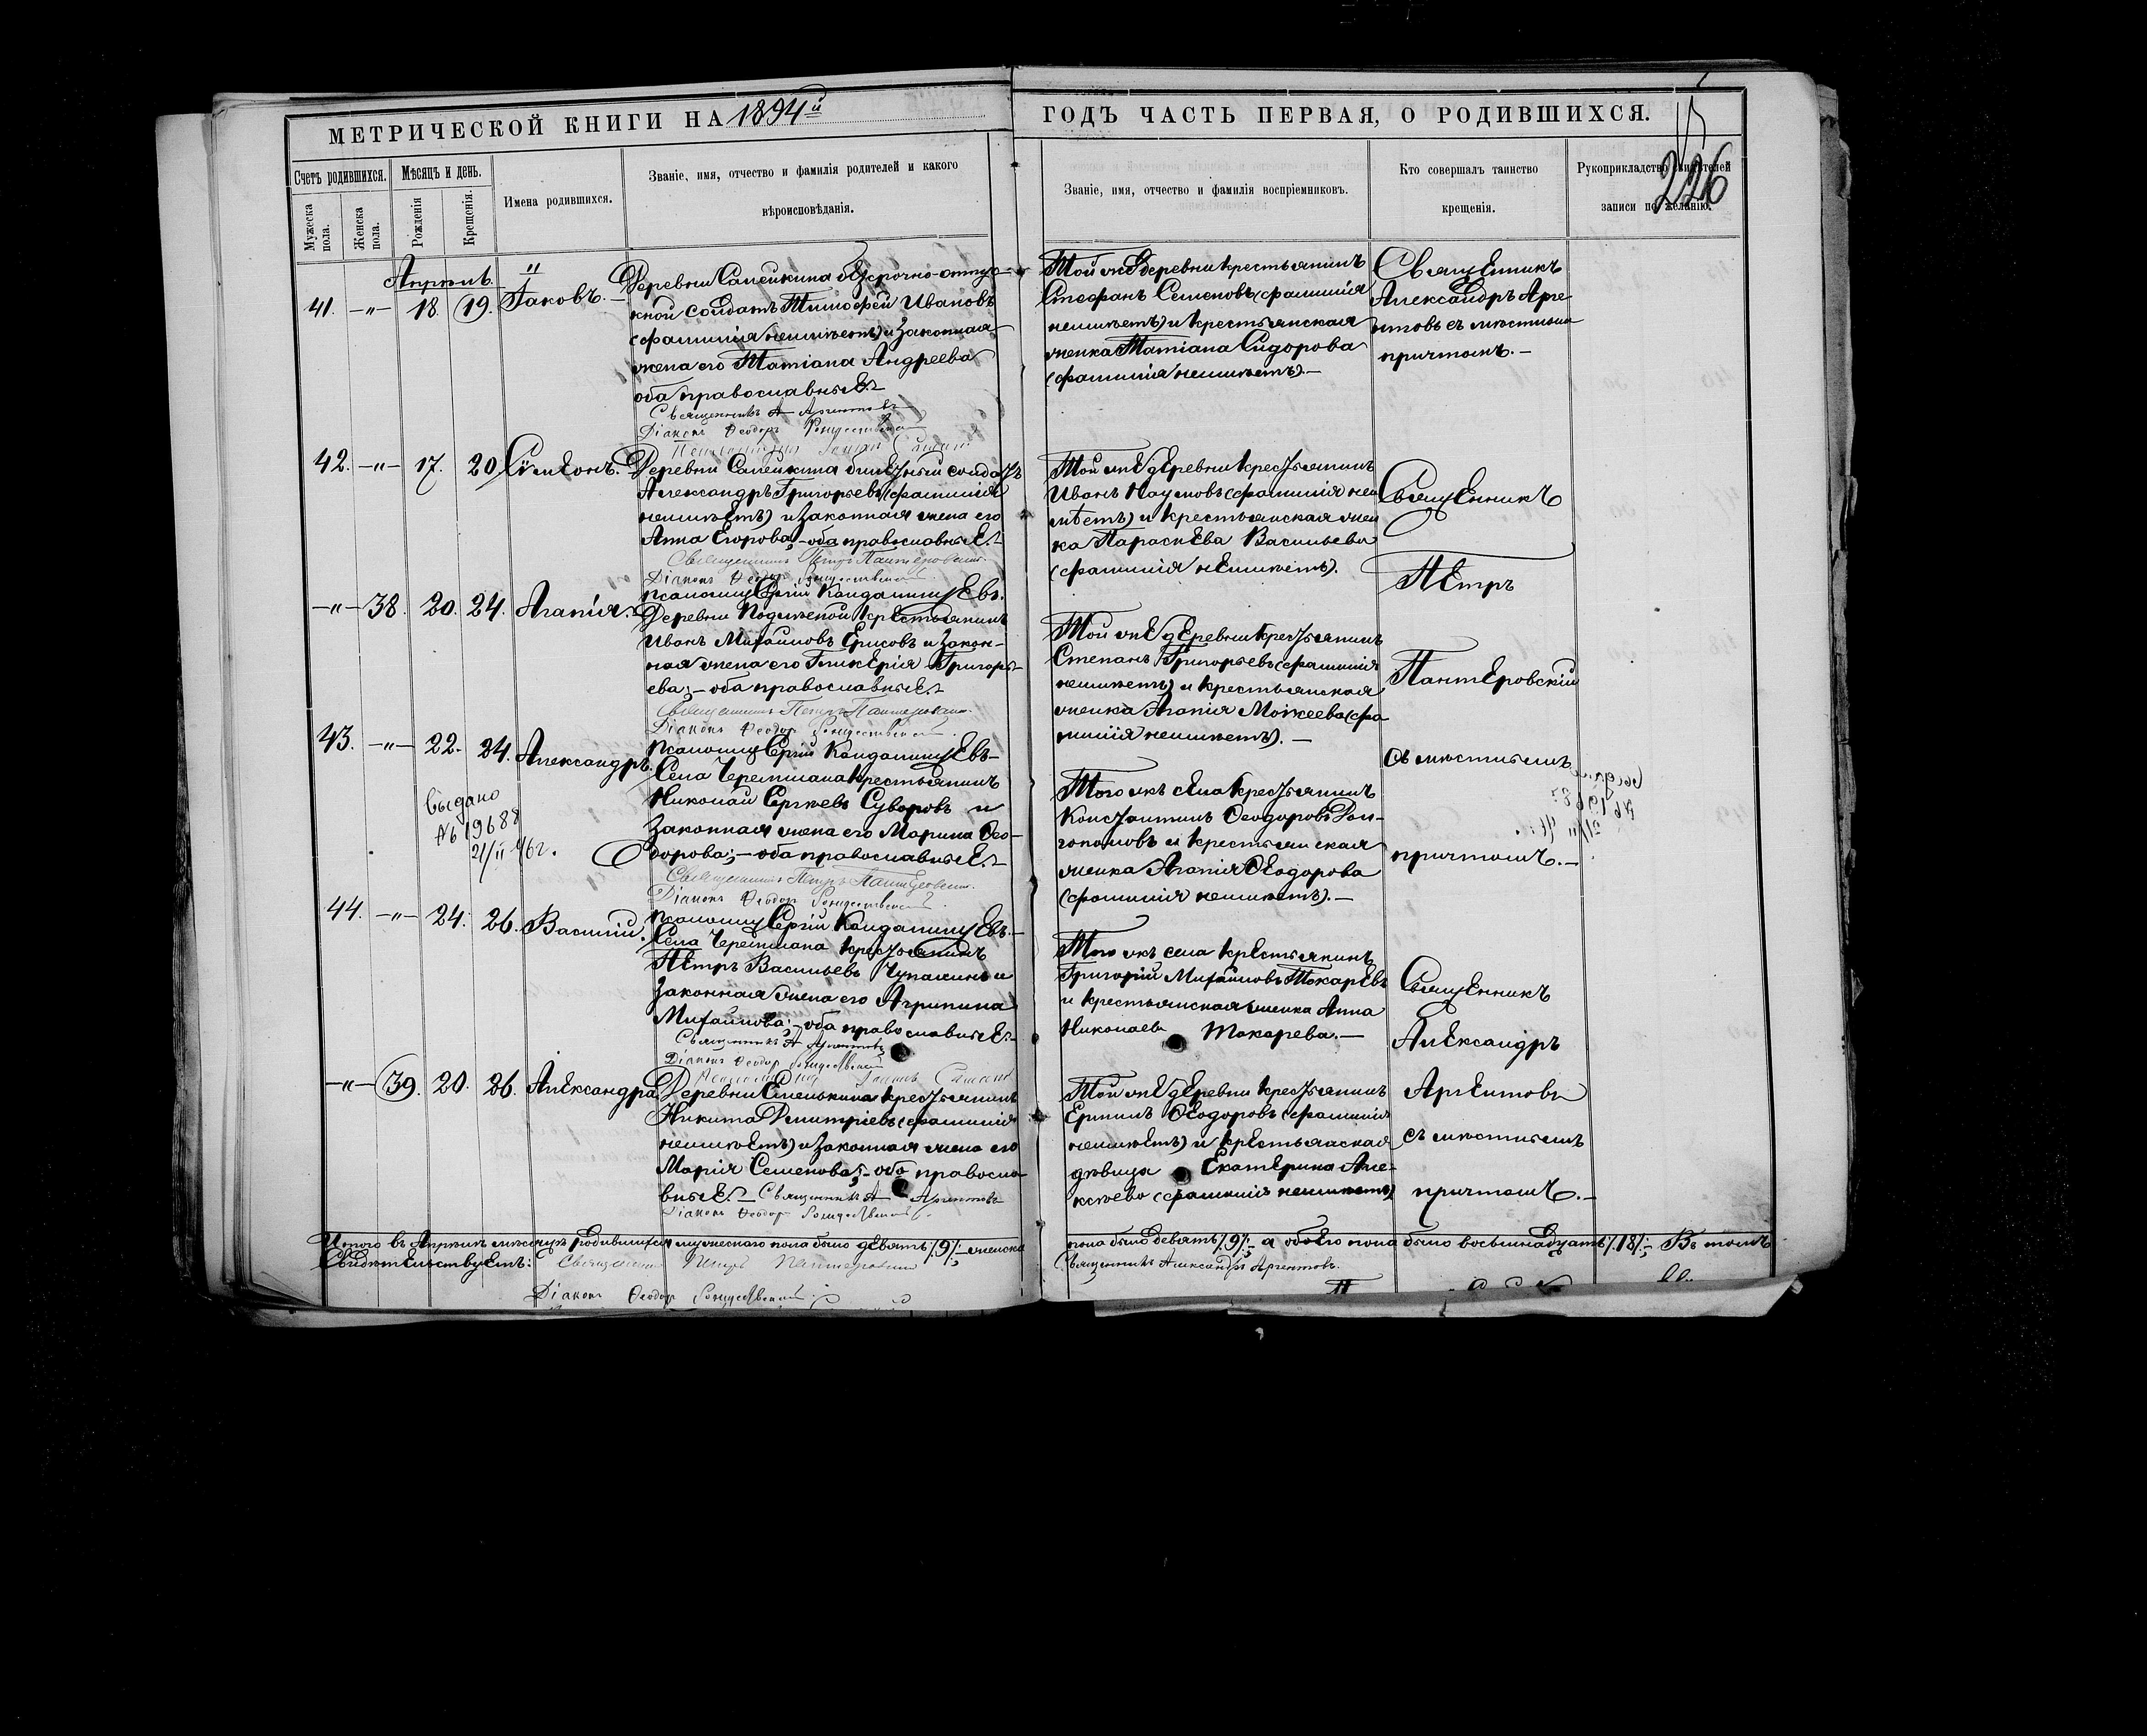 МЕТРИЧЕСКОЙ КНИГИ НА 1894й
ГОДЪ ЧАСТЬ ПЕРВАЯ, О РОДИВШИХСЯ.
226
Счетъ родившихся.
Мужеска пола.
Женска пола.
Мѣсяцъ и день.
Рожденія
Крещенія.
Имена родившихся.
Званіе, имя, отчество и фамилія родителей и какого
вѣроисповѣданія.
Званіе, имя, отчество и фамилія воспріемниковъ.
Кто совершалъ таинство
крещенія.
Рукоприкладство свидѣтелей
записи по желанію.
Апрѣль.
41. —"— 18. 19. Іаковъ.
Деревни Сапейкина безсрочно-отпус-
кной солдатъ Тимофей Ивановъ
(фамилія неимѣетъ) и законная
жена его Татіана Андреева
оба православные.
Священникъ А Аргентовъ
Діаконъ Ѳеодоръ Рождественскій
Той же деревни крестьянинъ
Стефанъ Семеновъ (фамилія
неимѣетъ) и крестьянская
женка Татіана Сидорова
(фамилія неимѣетъ).—
Священникъ
Александръ Арге
нтовъ съ мѣстнымъ
причтомъ.—
42. —"— 17. 20. Сѵмеонъ.
Деревни Сапейкина билетный солдатъ
Александръ Григорьевъ (фамилія
неимѣетъ) и законная жена его
Анна Егорова,—оба православные.
Священникъ Петръ Пантеровскій.
Діаконъ Ѳеодоръ Рождественскій.
Псаломщ Сергій
Той же деревни крестьянинъ
Иванъ Наумовъ (фамилія неи
мѣетъ) и крестьянская жен
ка Параскева Васильева
(фамилія неимѣетъ).
Священникъ
Петръ
Пантеровскій
съ мѣстнымъ
причтомъ.—
—"— 38. 20. 24. Агапія.
Деревни крестьянинъ
Иванъ Михайловъ и закон-
ная жена его Гликерія Григорь-
ева;—оба православные.
Священникъ Петръ Пантеровскій.
Діаконъ Ѳеодоръ Рождественскій.
Псаломщ Сергій
Той же деревни крестьянинъ
Степанъ Григорьевъ (фамилія
неимѣетъ) и крестьянская
женка Агапія Моисеева (фа
милія неимѣетъ).—
43. —"— 22. 24. Александръ.
Выдано
№ 19688
21/II 46г.
Села Черемшана крестьянинъ
Николай Сергѣевъ Суворовъ и
законная жена его Марина Ѳео-
дорова;—оба православные.—
Священникъ Петръ Пантеровскій.
Діаконъ Ѳеодоръ Рождественскій.
Псаломщ Сергій
Того же села крестьянинъ
Константинъ Ѳеодоровъ
и крестьянская
женка Агапія Ѳеодорова
(фамилія неимѣетъ).—
44. —"— 24. 26. Василій.
Села Черемшана крестьянинъ
Петръ Васильевъ и
законная жена его Агрипина
Михайлова;—оба православные.
Священникъ А Аргентовъ
Діаконъ Ѳеодоръ Рождественскій
Того же села крестьянинъ
Григорій Михайловъ Токаревъ
и крестьянская женка Анна
Николаева Токарева.—
Священникъ
Александръ
Аргентовъ
съ мѣстнымъ
причтомъ.—
—"— 39. 20. 26. Александра
Деревни крестьянинъ
Никита Дмитріевъ (фамилія
неимѣетъ) и законная жена его
Марія Семенова;—оба правосла-
вные.— Священникъ А Аргентовъ
Діаконъ Ѳеодоръ Рождественскій.
Той же деревни крестьянинъ
Ѳеодоровъ (фамилія
неимѣетъ) и крестьянская
дѣвица Екатерина Але-
ксѣева (фамилія неимѣетъ)
Итого въ Апрѣлѣ мѣсяцѣ родившихся мужескаго пола было девять /.9/.;—женска
пола было девять /.9/.;— а обоего пола было восьмнадцать /.18/.;— Въ томъ
Свидѣтельствуетъ: Священникъ Петръ Пантеровскій
Священникъ Александръ Аргентовъ.
Діаконъ Ѳеодоръ Рождественскій.